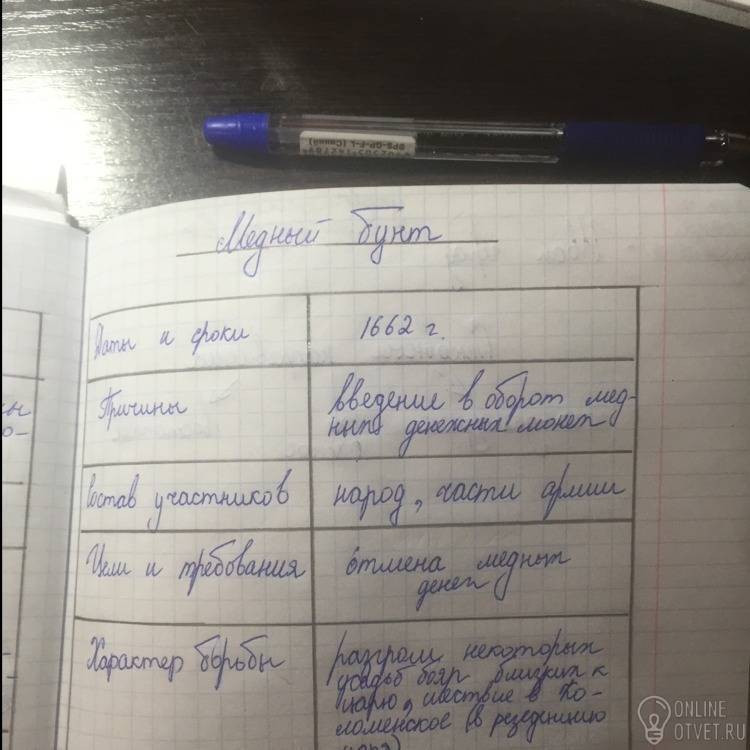 BPS-GP-F-L (Синий)
Медный бунт
Даты и сроки
1662 г.
Причины
введение в оборот мед-
ных денежных монет
Состав участников
народ, части армии
Цели и требования
отмена медных
денег
Характер борьбы
разгром некоторых
усадьб бояр близких к
царю, шествие в Ко-
ломенское (в резеденцию
царя)
ONLINE
OTVET.RU